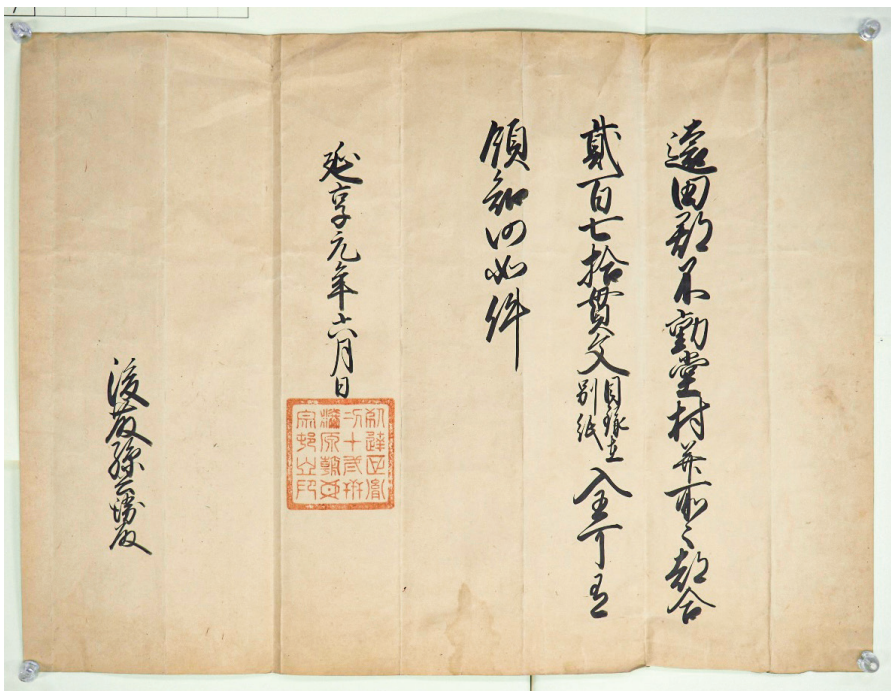 遠田郡不動堂村并所々都合
貳百七拾貫文
目録在
別紙
全可有
領知仍如件
延享元年六月日
藤原朝臣
宗村之印
後藤孫兵衛殿